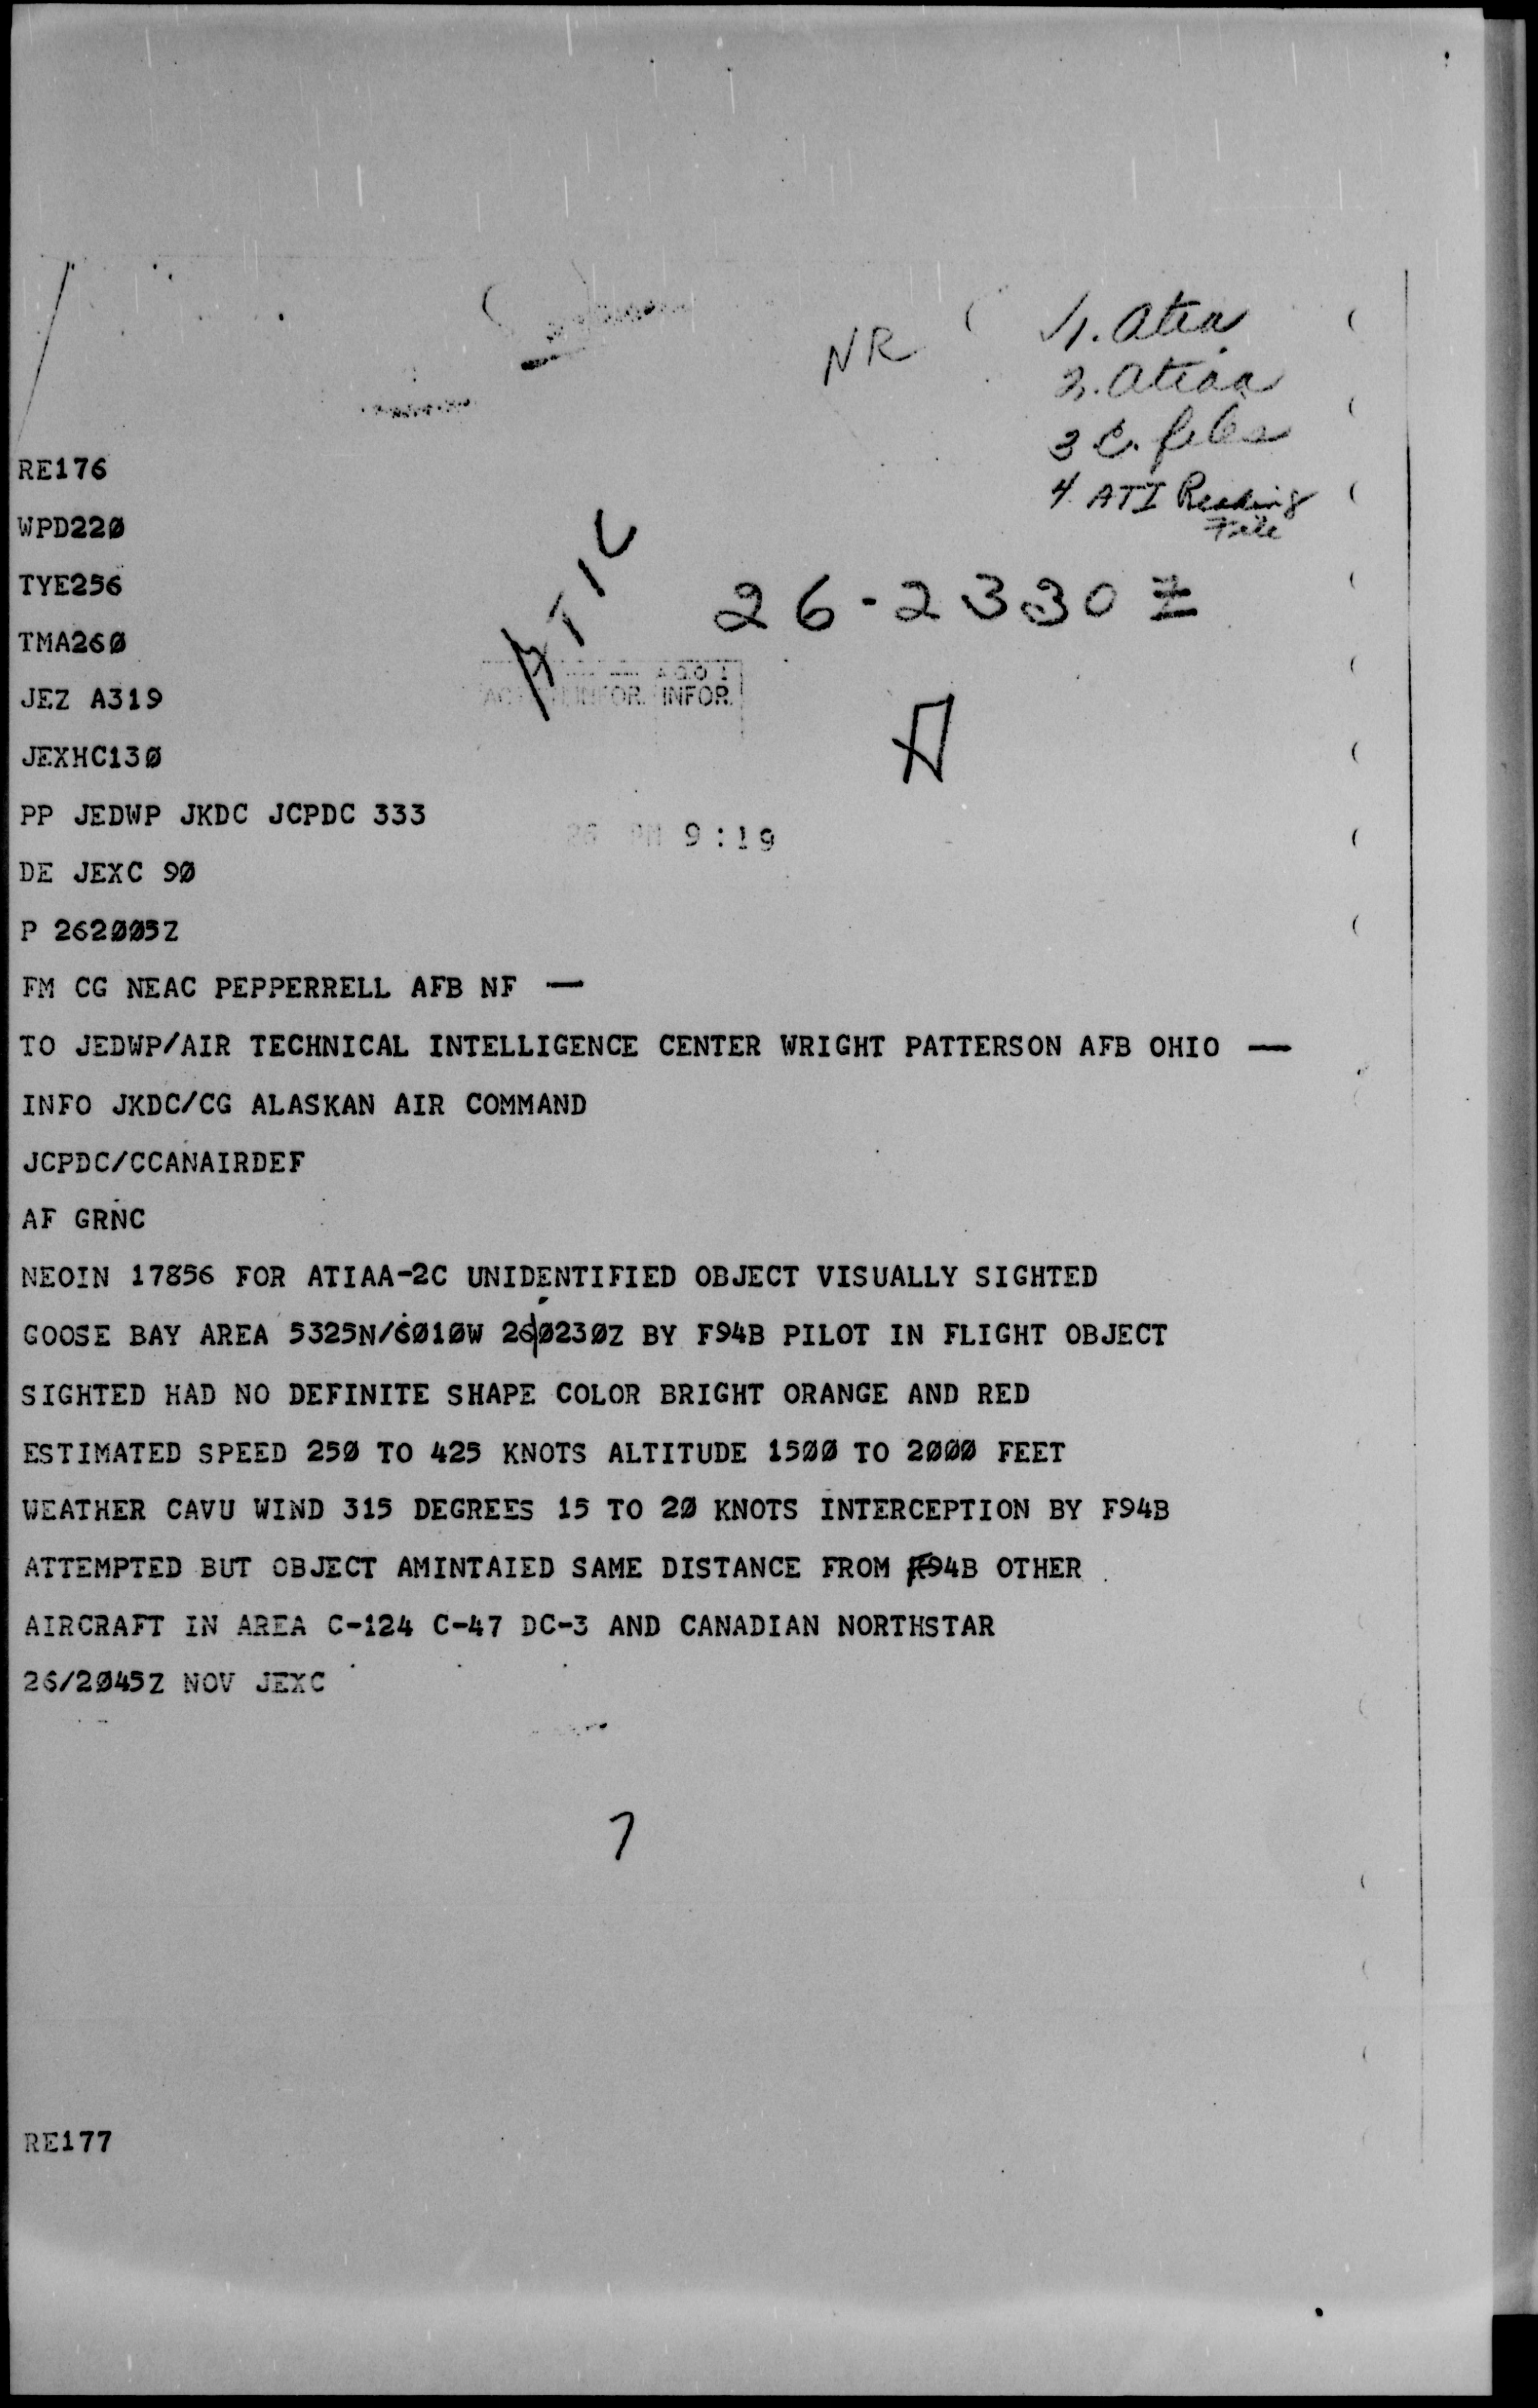 NR
1. Atia
2. Atiaa
3 C. files
4 ATI Reading
File
RE176
WPD22Ø
ATIC
TYE256
26-2330Z
TMA26Ø
JEZ A319
INFOR. INFOR.
JEXHC13Ø
A
PP JEDWP JKDC JCPDC 333
26 PM 9:19
DE JEXC 9Ø
P 262ØØ5Z
FM CG NEAC PEPPERRELL AFB NF —
TO JEDWP/AIR TECHNICAL INTELLIGENCE CENTER WRIGHT PATTERSON AFB OHIO —
INFO JKDC/CG ALASKAN AIR COMMAND
JCPDC/CCANAIRDEF
AF GRNC
NEOIN 17856 FOR ATIAA-2C UNIDENTIFIED OBJECT VISUALLY SIGHTED
GOOSE BAY AREA 5325N/6Ø1ØW 26Ø23ØZ BY F94B PILOT IN FLIGHT OBJECT
SIGHTED HAD NO DEFINITE SHAPE COLOR BRIGHT ORANGE AND RED
ESTIMATED SPEED 25Ø TO 425 KNOTS ALTITUDE 15ØØ TO 2ØØØ FEET
WEATHER CAVU WIND 315 DEGREES 15 TO 2Ø KNOTS INTERCEPTION BY F94B
ATTEMPTED BUT OBJECT AMINTAIED SAME DISTANCE FROM F94B OTHER
AIRCRAFT IN AREA C-124 C-47 DC-3 AND CANADIAN NORTHSTAR
26/2Ø45Z NOV JEXC
7
RE177